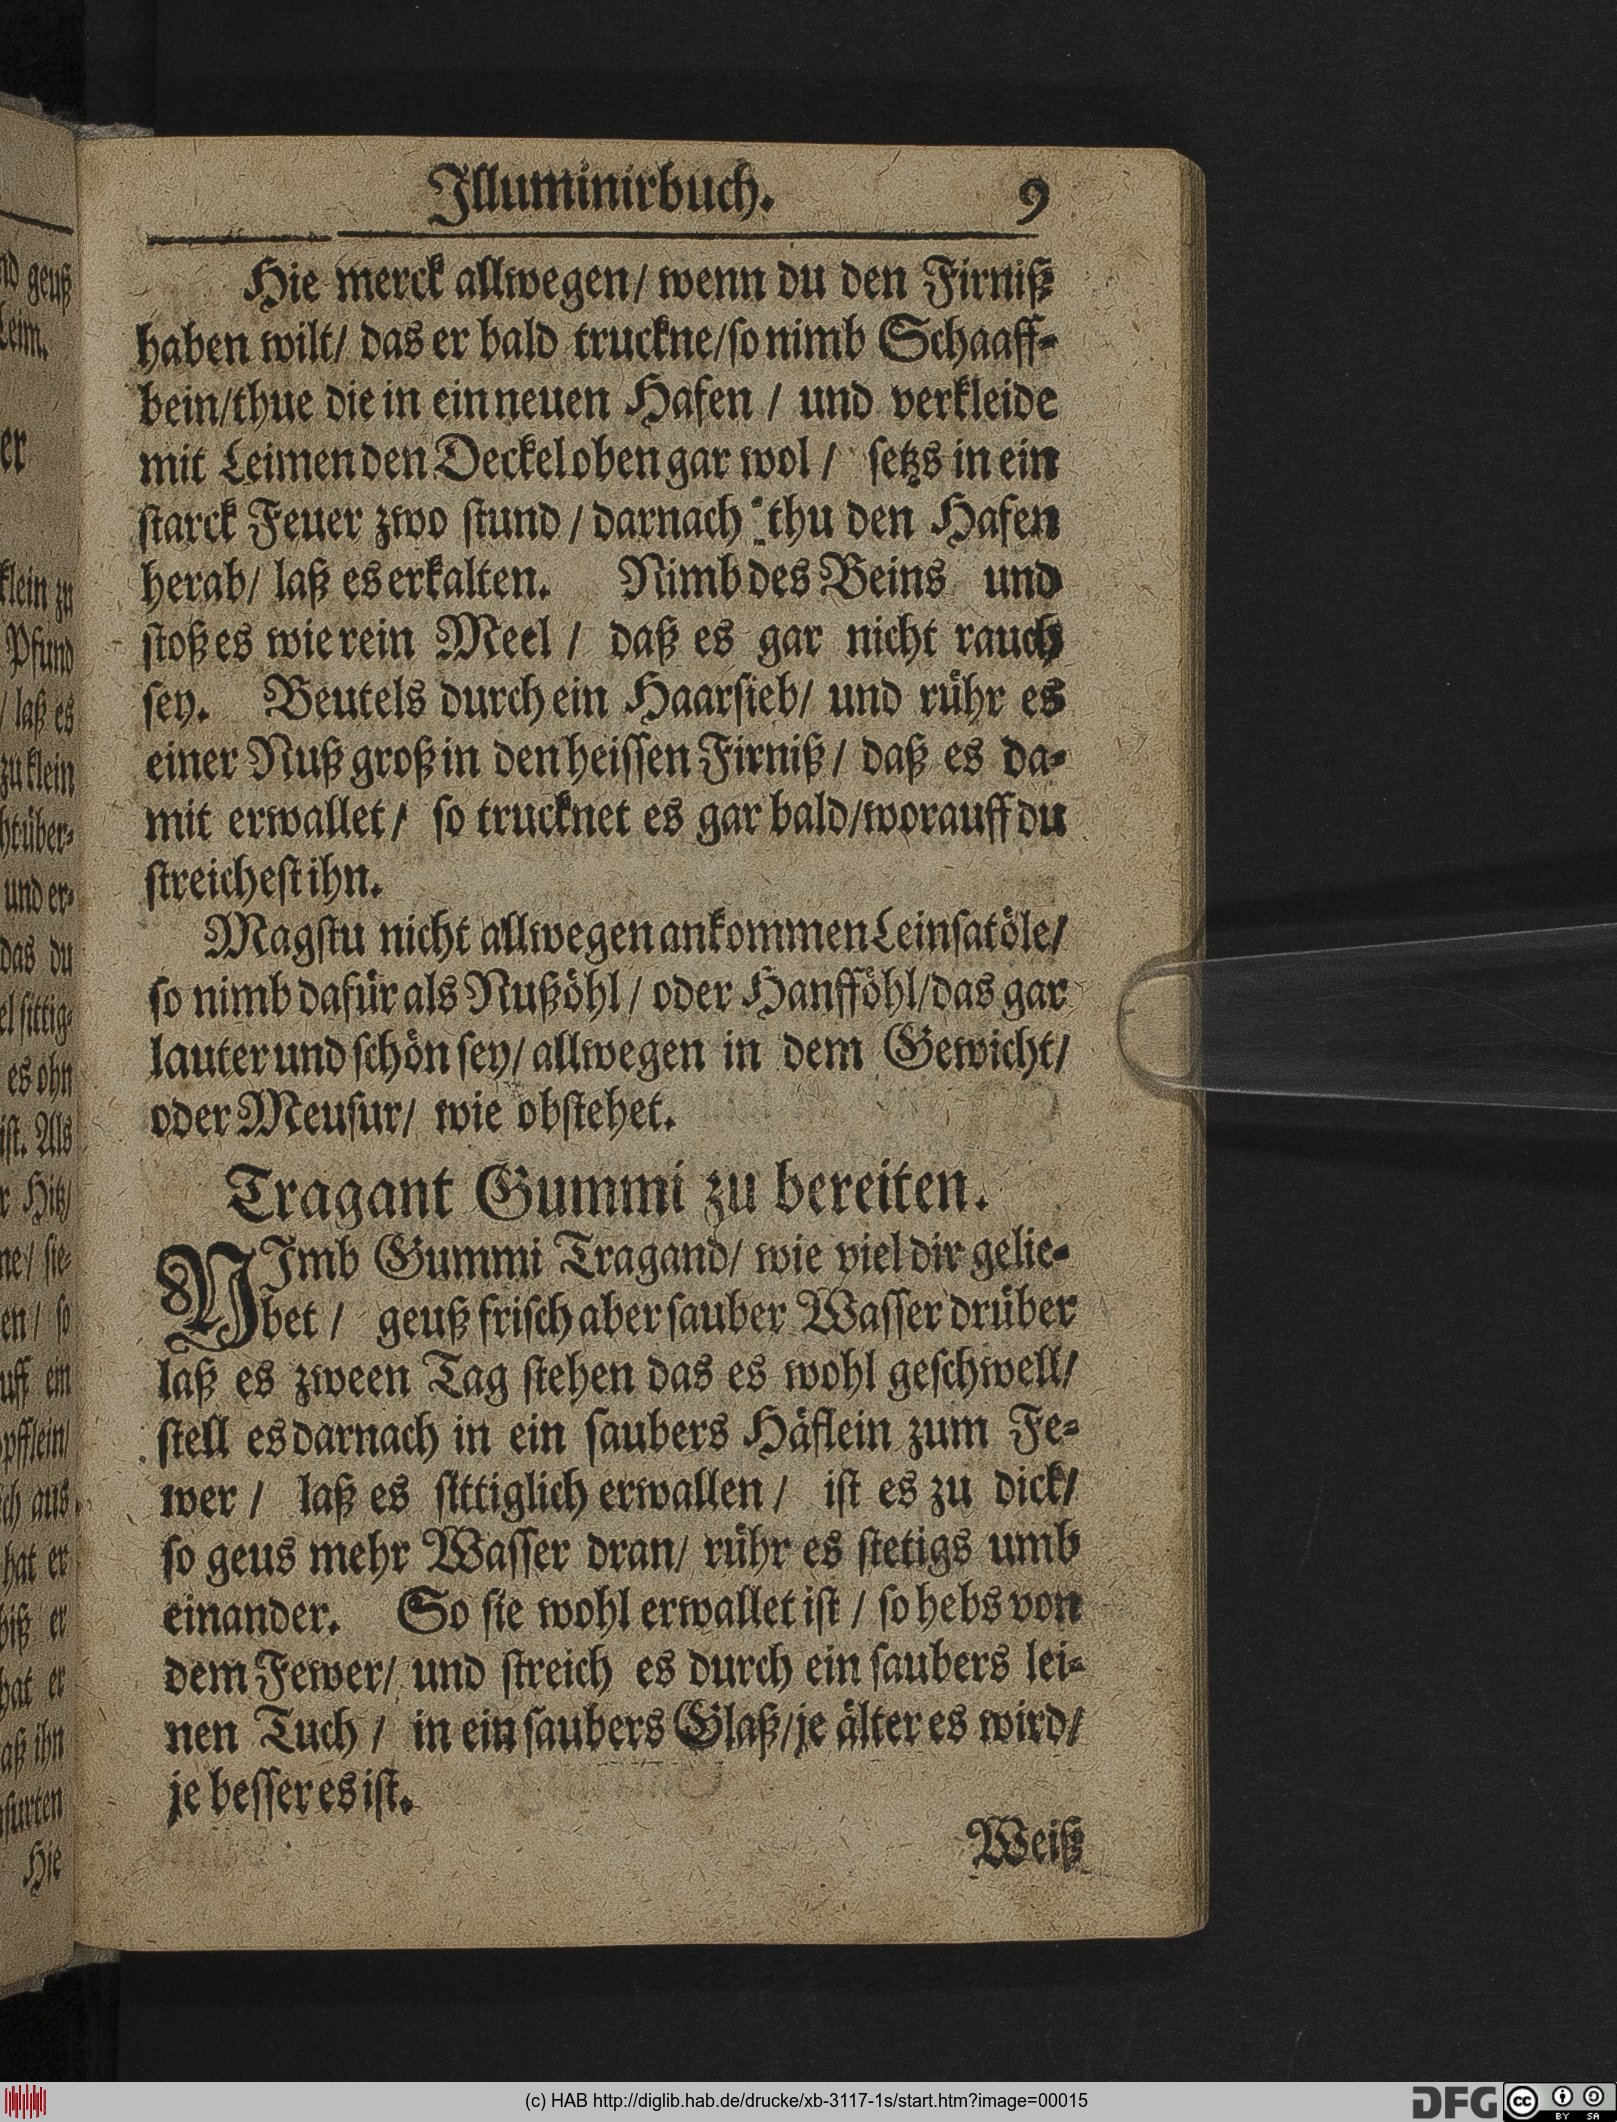 Illuminirbuch. 9
Hie merck allwegen/ wenn du den Firniß
haben wilt/ das er bald truckne/ so nimb Schaaff-
bein/ thue die in ein neuen Hafen / und verkleide
mit Leimen den Deckel oben gar wol / setzs in ein
starck Feuer zwo stund / darnach thu den Hafen
herab/ laß es erkalten. Nimb des Beins und
stoß es wie rein Meel / daß es gar nicht rauch
sey. Beutels durch ein Haarsieb/ und rühr es
einer Nuß groß in den heissen Firniß / daß es da-
mit erwallet/ so trucknet es gar bald/ worauff du
streichest ihn.
Magstu nicht allwegen ankommen Leinsatöle/
so nimb dafür als Nußöhl / oder Hanfföhl/ das gar
lauter und schön sey/ allwegen in dem Gewicht/
oder Meusur/ wie obstehet.
Tragant Gummi zu bereiten.
NImb Gummi Tragand/ wie viel dir gelie-
bet / geuß frisch aber sauber Wasser drüber
laß es zween Tag stehen das es wohl geschwell/
stell es darnach in ein saubers Häflein zum Fe-
wer / laß es sittiglich erwallen / ist es zu dick/
so geus mehr Wasser dran/ rühr es stetigs umb
einander. So sie wohl erwallet ist / so hebs von
dem Fewer/ und streich es durch ein saubers lei-
nen Tuch / in ein saubers Glaß/ je älter es wird/
je besser es ist.
Weiß
(c) HAB http://diglib.hab.de/drucke/xb-3117-1s/start.htm?image=00015
DFG
cc BY SA